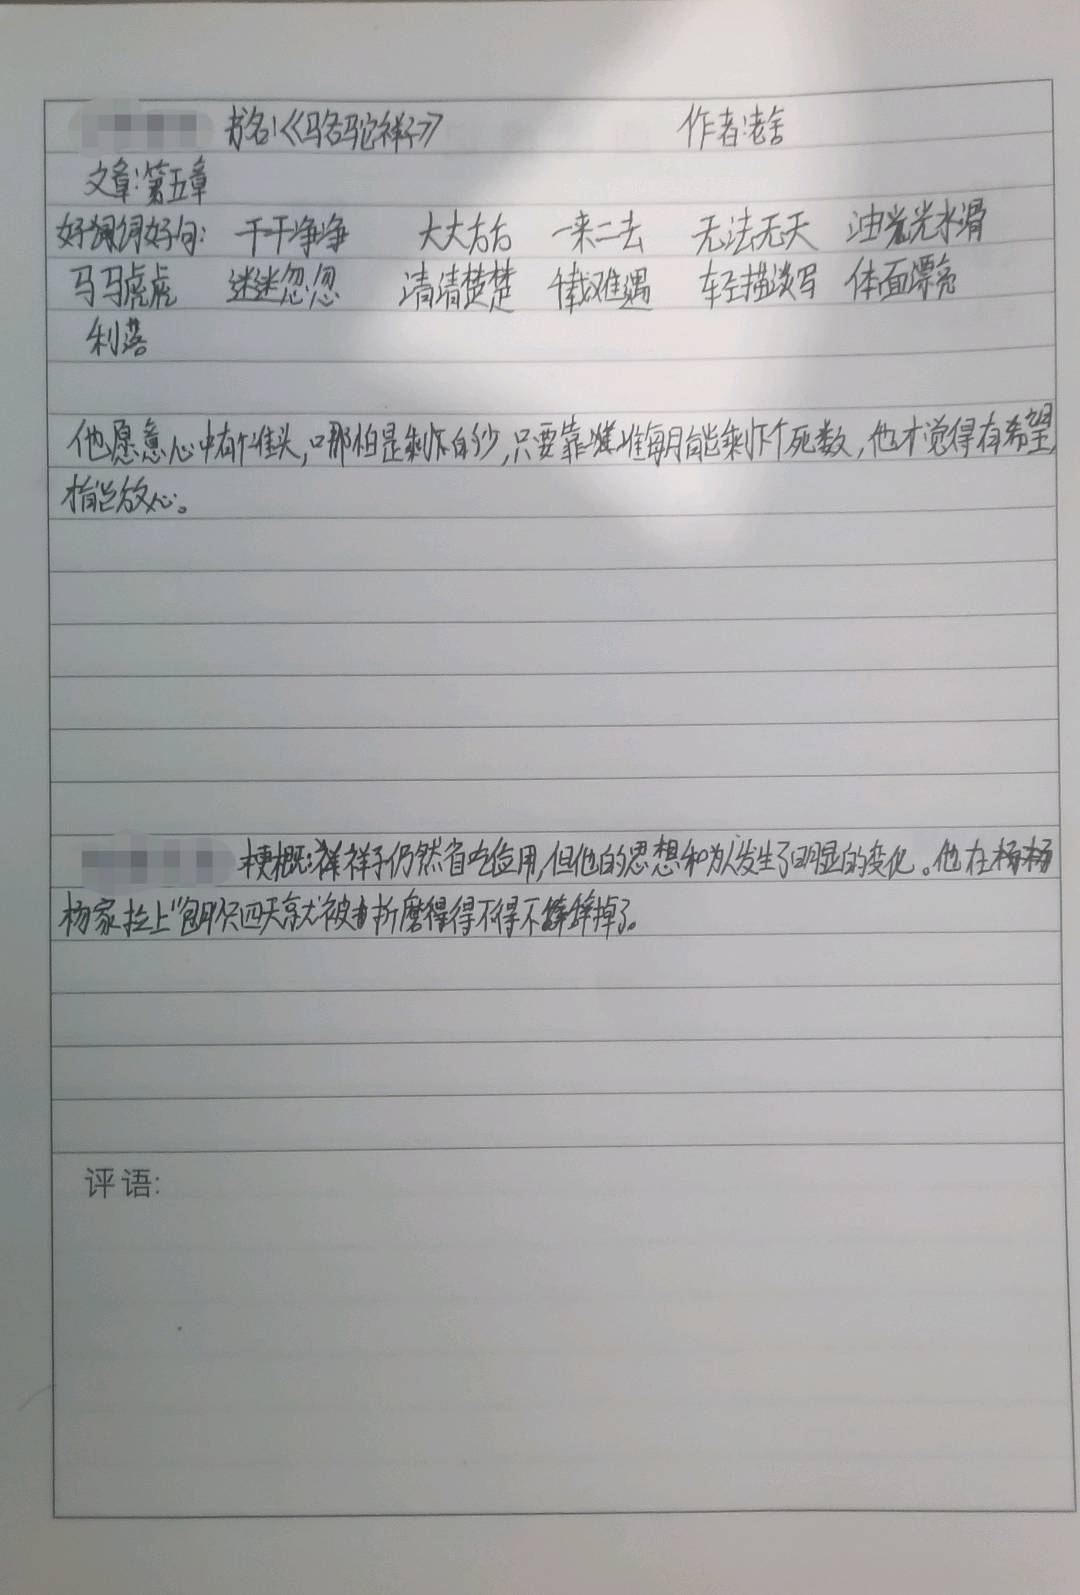 书名:《骆驼祥子》 作者:老舍
文章:第五章
好词好句: 干干净净 大大方方 一来二去 无法无天 油光光水滑
马马虎虎 迷迷忽忽 清清楚楚 千载难遇 轻描淡写 体面漂亮
利落
他愿意心中有个准头,哪怕是剩的少,只要靠准每月能剩下个死数,他才觉得有希望,
才能放心。
梗概:祥子仍然省吃俭用,但他的思想和为人发生了明显的变化。他在杨
杨家拉上"包月"只四天就被折磨得不得不辞掉了。
评语: